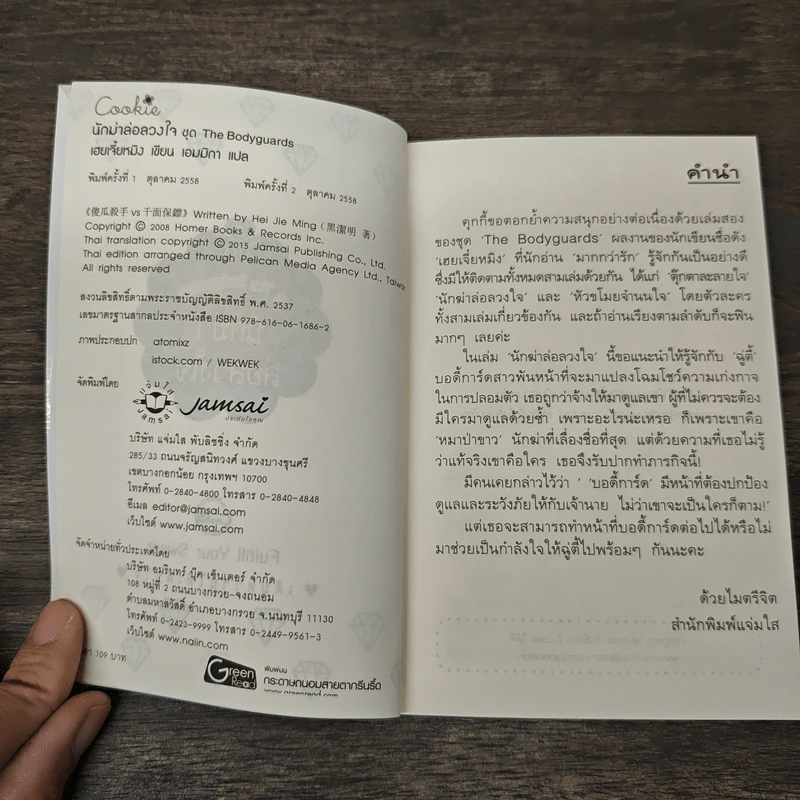 Cookie
นักฆ่าล่อลวงใจ ชุด The Bodyguards
เฮยเจี๋ยหมิง เขียน เอมมิกา แปล
พิมพ์ครั้งที่ 1 ตุลาคม 2558 พิมพ์ครั้งที่ 2 ตุลาคม 2558
《傻瓜殺手 vs 千面保鏢》Written by Hei Jie Ming (黑潔明 著)
Copyright © 2008 Homer Books & Records Inc.
Thai translation copyright © 2015 Jamsai Publishing Co., Ltd.
Thai edition arranged through Pelican Media Agency Ltd., Taiwan
All rights reserved
สงวนลิขสิทธิ์ตามพระราชบัญญัติลิขสิทธิ์ พ.ศ. 2537
เลขมาตรฐานสากลประจำหนังสือ ISBN 978-616-06-1686-2
ภาพประกอบปก atomixz
istock.com / WEKWEK
จัดพิมพ์โดย
แจ่มใส
Jamsai
Jamsai
บริษัท แจ่มใส พับลิชชิ่ง จำกัด
285/33 ถนนจรัญสนิทวงศ์ แขวงบางขุนศรี
เขตบางกอกน้อย กรุงเทพฯ 10700
โทรศัพท์ 0-2840-4800 โทรสาร 0-2840-4848
อีเมล editor@jamsai.com
เว็บไซต์ www.jamsai.com
จัดจำหน่ายทั่วประเทศโดย
บริษัท อมรินทร์ บุ๊ค เซ็นเตอร์ จำกัด
108 หมู่ที่ 2 ถนนบางกรวย-จงถนอม
ตำบลมหาสวัสดิ์ อำเภอบางกรวย จ.นนทบุรี 11130
โทรศัพท์ 0-2423-9999 โทรสาร 0-2449-9561-3
เว็บไซต์ www.naiin.com
109 บาท
Green Read
พิมพ์บน
กระดาษถนอมสายตากรีนรี้ด
www.greenread.com
คำนำ
คุกกี้ขอตอกย้ำความสนุกอย่างต่อเนื่องด้วยเล่มสอง
ของชุด 'The Bodyguards' ผลงานของนักเขียนชื่อดัง
'เฮยเจี๋ยหมิง' ที่นักอ่าน 'มากกว่ารัก' รู้จักกันเป็นอย่างดี
ซึ่งมีให้ติดตามทั้งหมดสามเล่มด้วยกัน ได้แก่ 'ตุ๊กตาละลายใจ'
'นักฆ่าล่อลวงใจ' และ 'หัวขโมยจำนนใจ' โดยตัวละคร
ทั้งสามเล่มเกี่ยวข้องกัน และถ้าอ่านเรียงตามลำดับก็จะฟิน
มากๆ เลยค่ะ
ในเล่ม 'นักฆ่าล่อลวงใจ' นี้ขอแนะนำให้รู้จักกับ 'ฉู่ตี้'
บอดี้การ์ดสาวพันหน้าที่จะมาแปลงโฉมโชว์ความเก่งกาจ
ในการปลอมตัว เธอถูกว่าจ้างให้มาดูแลเขา ผู้ที่ไม่ควรจะต้อง
มีใครมาดูแลด้วยซ้ำ เพราะอะไรน่ะเหรอ ก็เพราะเขาคือ
'หมาป่าขาว' นักฆ่าที่เลื่องชื่อที่สุด แต่ด้วยความที่เธอไม่รู้
ว่าแท้จริงเขาคือใคร เธอจึงรับปากทำภารกิจนี้!
มีคนเคยกล่าวไว้ว่า ' 'บอดี้การ์ด' มีหน้าที่ต้องปกป้อง
ดูแลและระวังภัยให้กับเจ้านาย ไม่ว่าเขาจะเป็นใครก็ตาม!'
แต่เธอจะสามารถทำหน้าที่บอดี้การ์ดต่อไปได้หรือไม่
มาช่วยเป็นกำลังใจให้ฉู่ตี้ไปพร้อมๆ กันนะคะ
ด้วยไมตรีจิต
สำนักพิมพ์แจ่มใส